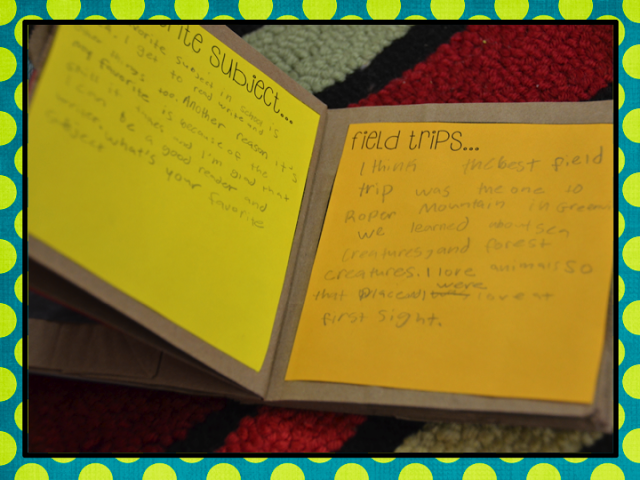 rite subject...
subject in school is
I get to read write and
things too. Another reason it's
my favorite is because of the
skill it gives and I'm glad that
I can be a good reader and
writer. what's your favorite
subject
field trips...
I think the best field
trip was the one to
Roper Mountain in
We learned about sea
creatures, and forest
creatures. I love animals so
that place and I were love at
first sight.